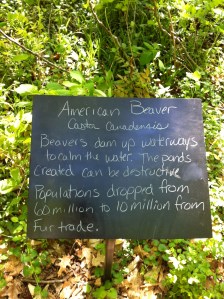 American Beaver
Castor Canadensis
Beavers dam up waterways
to calm the water. The ponds
created can be destructive
Populations dropped from
60 million to 10 million from
Fur trade.